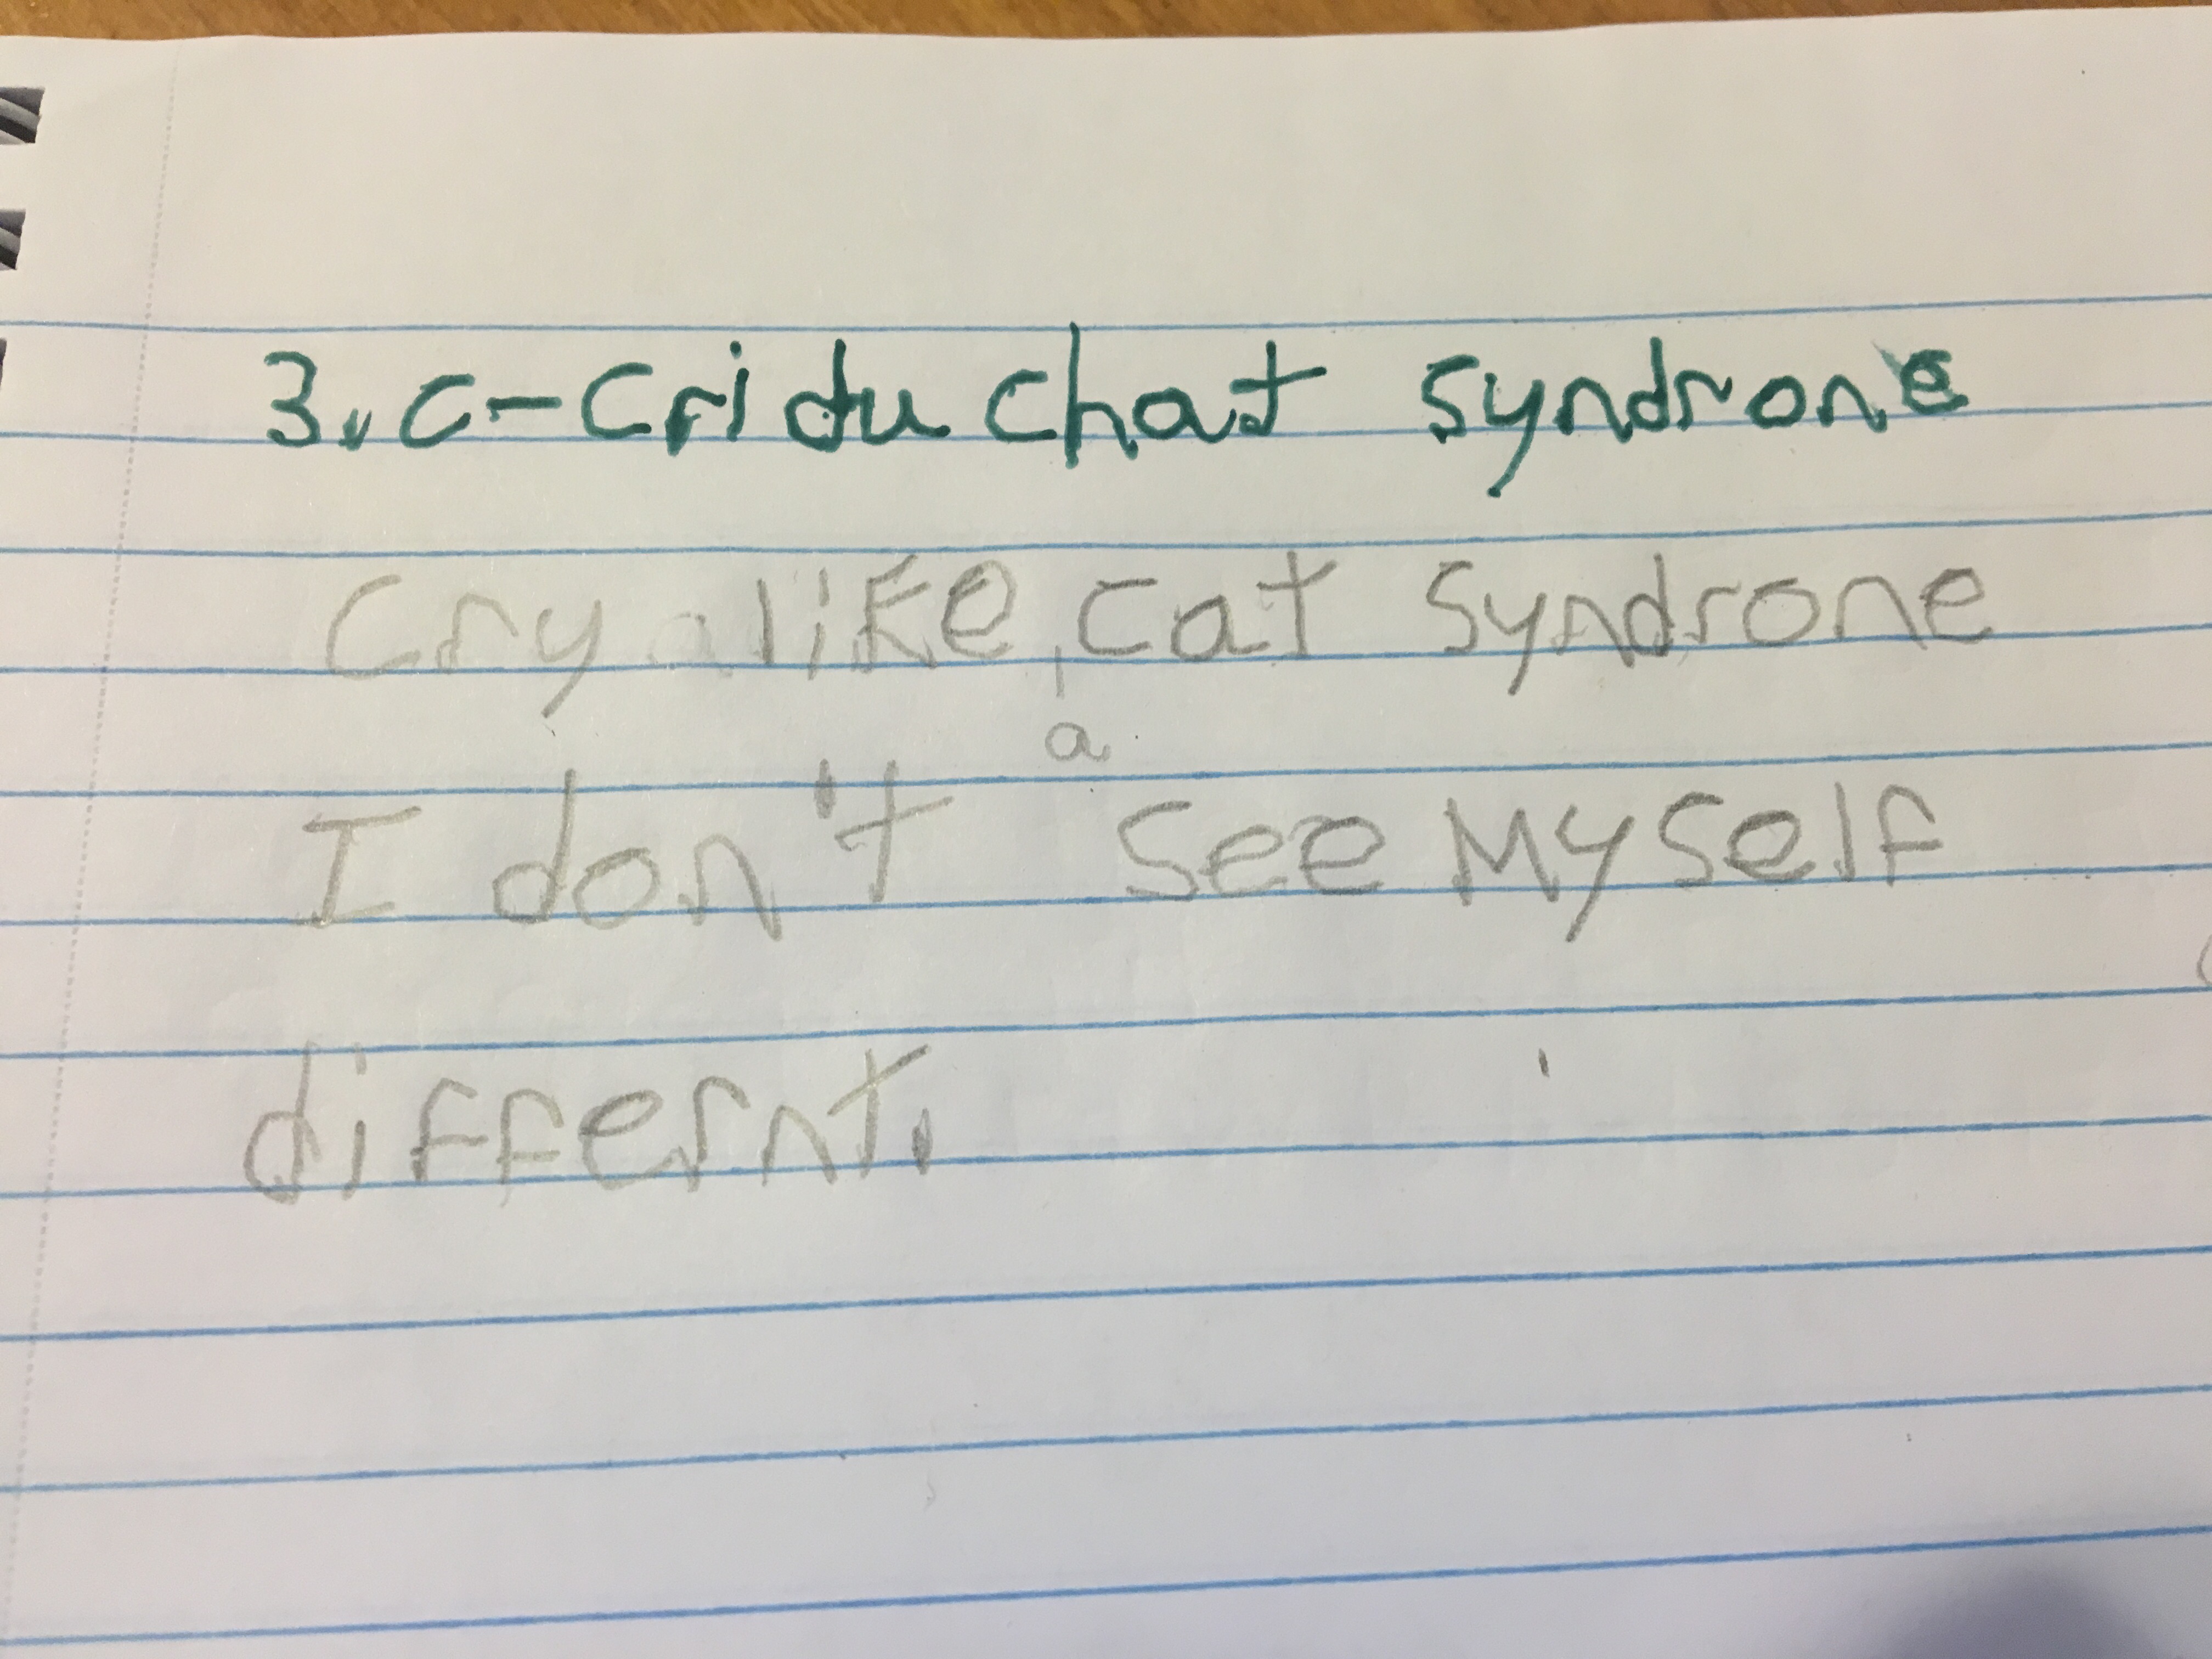 3. C-Cri du chat syndrone
Cry like cat syndrone
a
I don't see Myself
differnt.